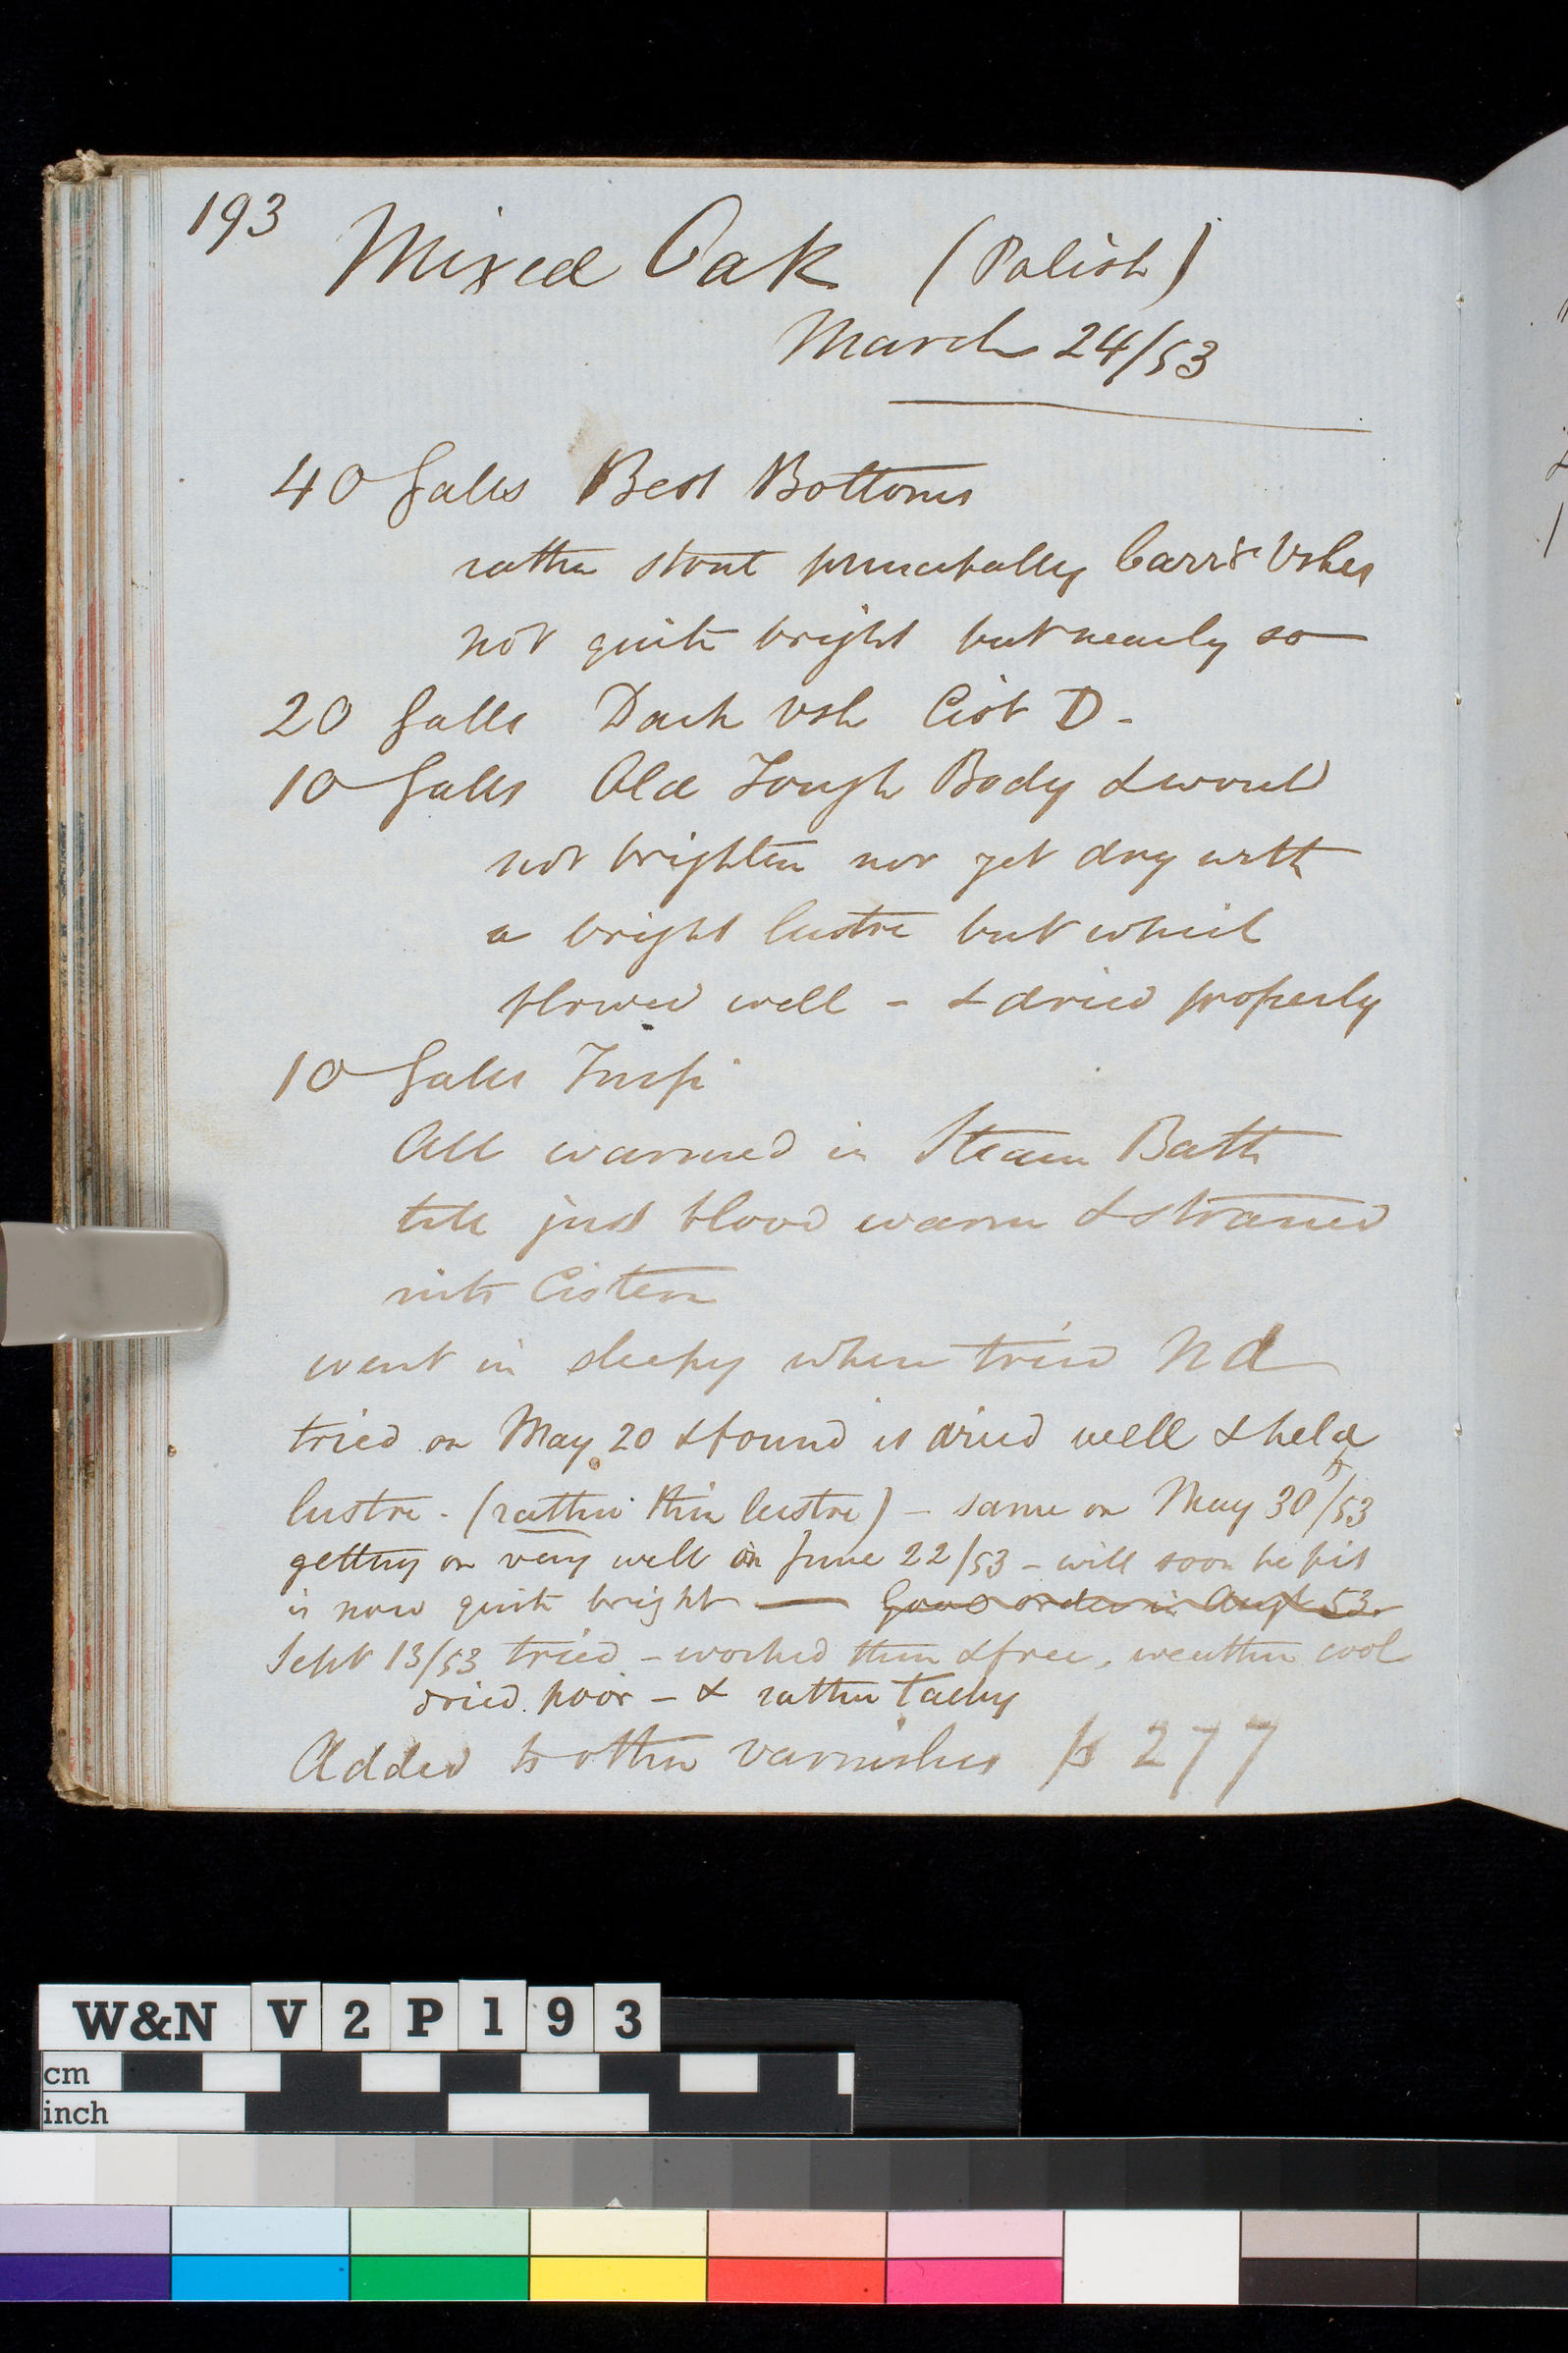 193
Mixed Oak (Polish)
March 24/53
40 Galls Best Bottoms
rather stout principally Carre Vshes
not quite bright but nearly so
20 Galls Dark Vsh Cist D -
10 Galls Old Tough Body & would
not brighten nor yet dry with
a bright lustre but which
flowed well - & dried properly
10 Galls Turps
All warmed in Steam Bath
till just blood warm & strained
into Cistern
went in sleepy when tried
tried on May 20 & found it dried well & held
lustre - (rather thin lustre) - same on May 30th/53
getting on very well on June 22/53 - will soon be fit
is now quite bright — Good order in Augt 53.
Sept 13/53 tried - worked thin & free, weather cool
dried poor - & rather tacky
Added to other varnishes P 277
W&N V2P193
cm
inch